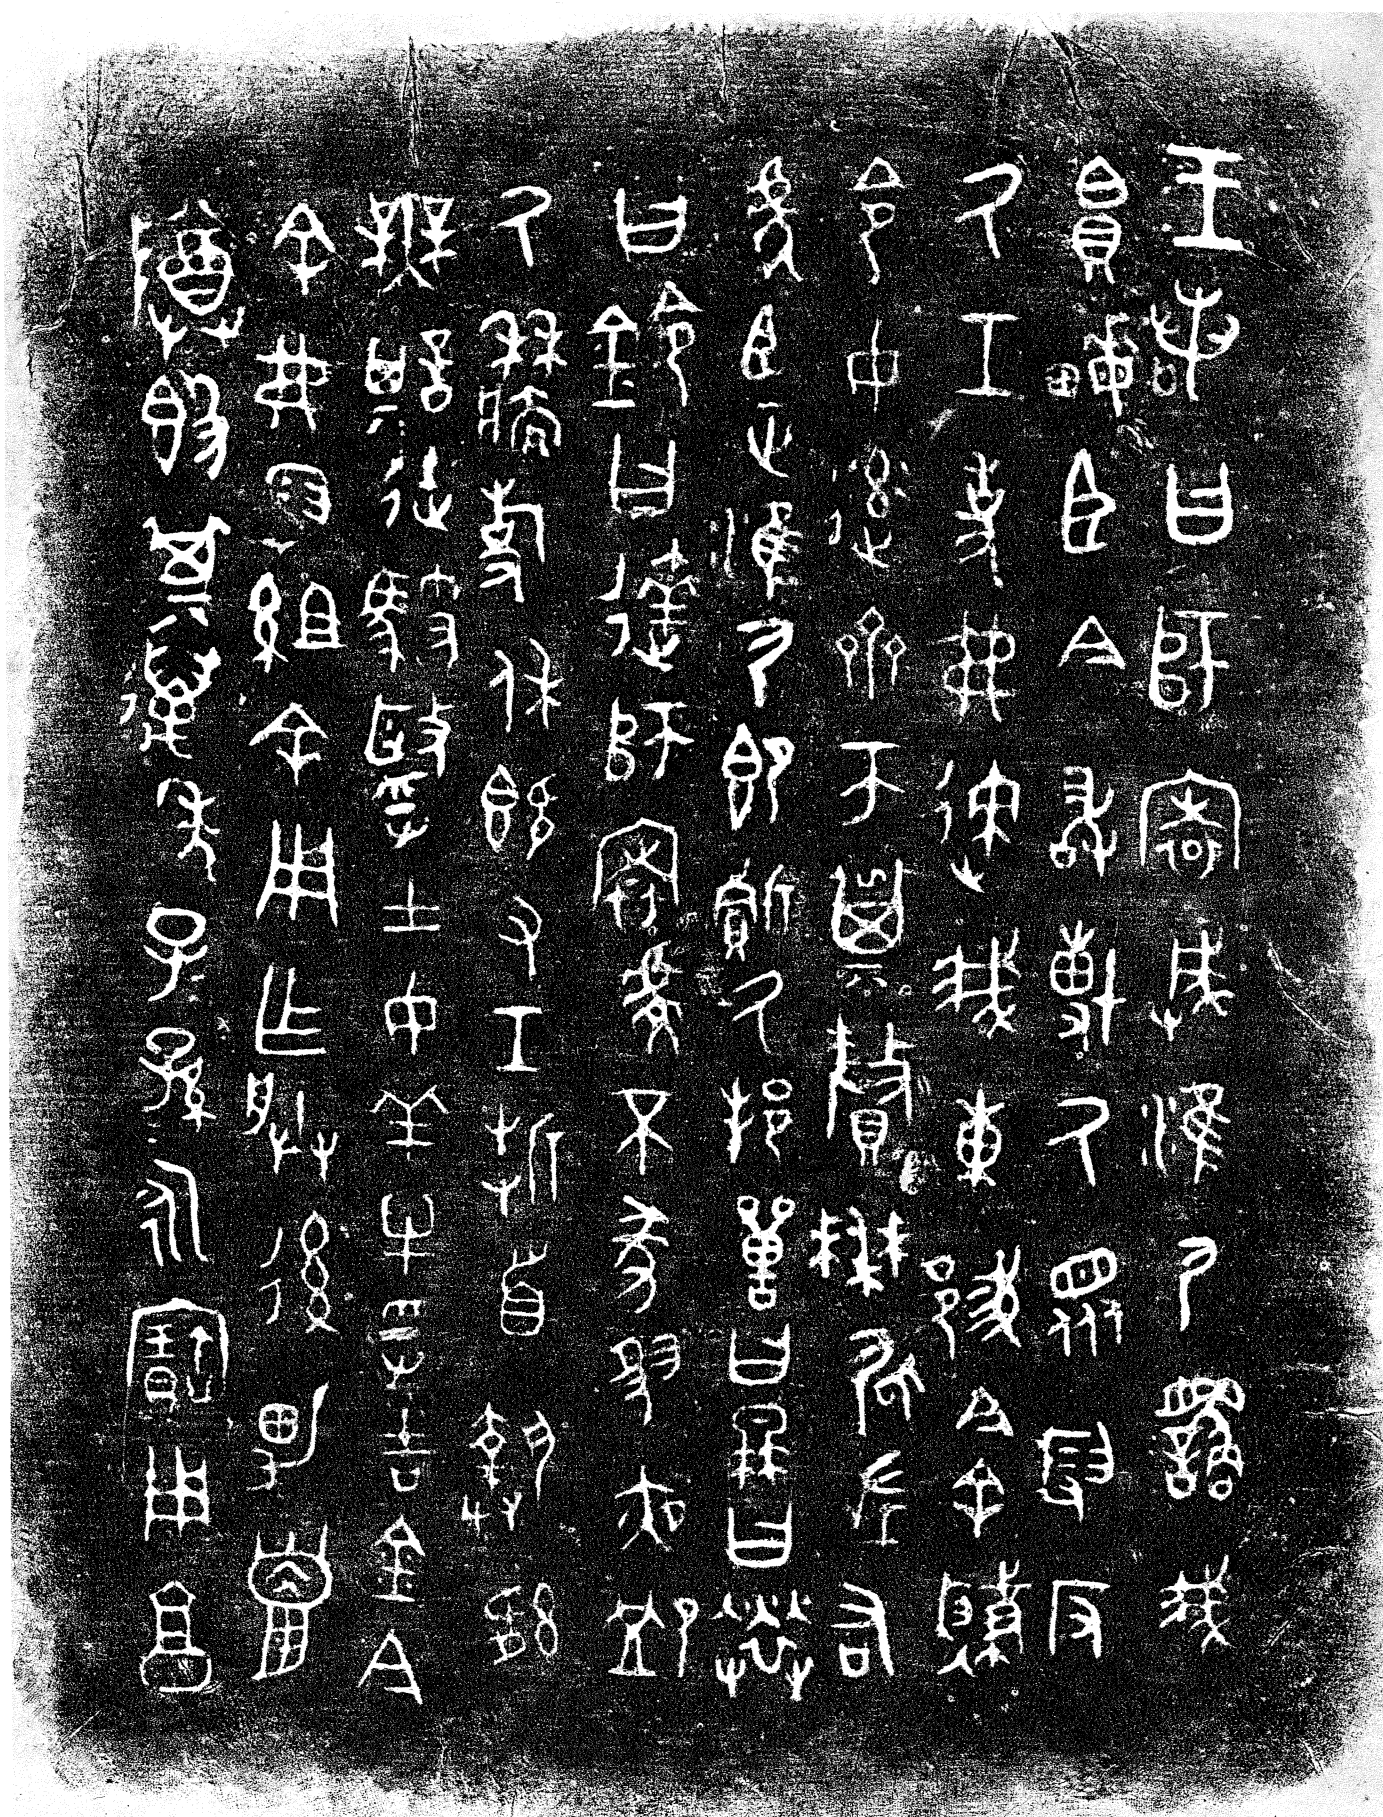 王若曰師㝨淮尸繇我
員畮臣今敢博厥眾叚反
厥工吏弗速我東今余肇
令女率齊師釐僰左右
虎臣正淮尸即質厥邦獸曰冉曰
曰鈴曰達師㝨虔不㒸夙夜卹
厥牆事休既又工折首執訊
無諆徒馭毆孚士女羊牛孚吉金今
余弗叚組余用乍朕後男巤
尊簋其萬年子孫永寶用享